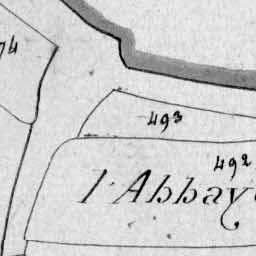 74
493
492
l'Abbay